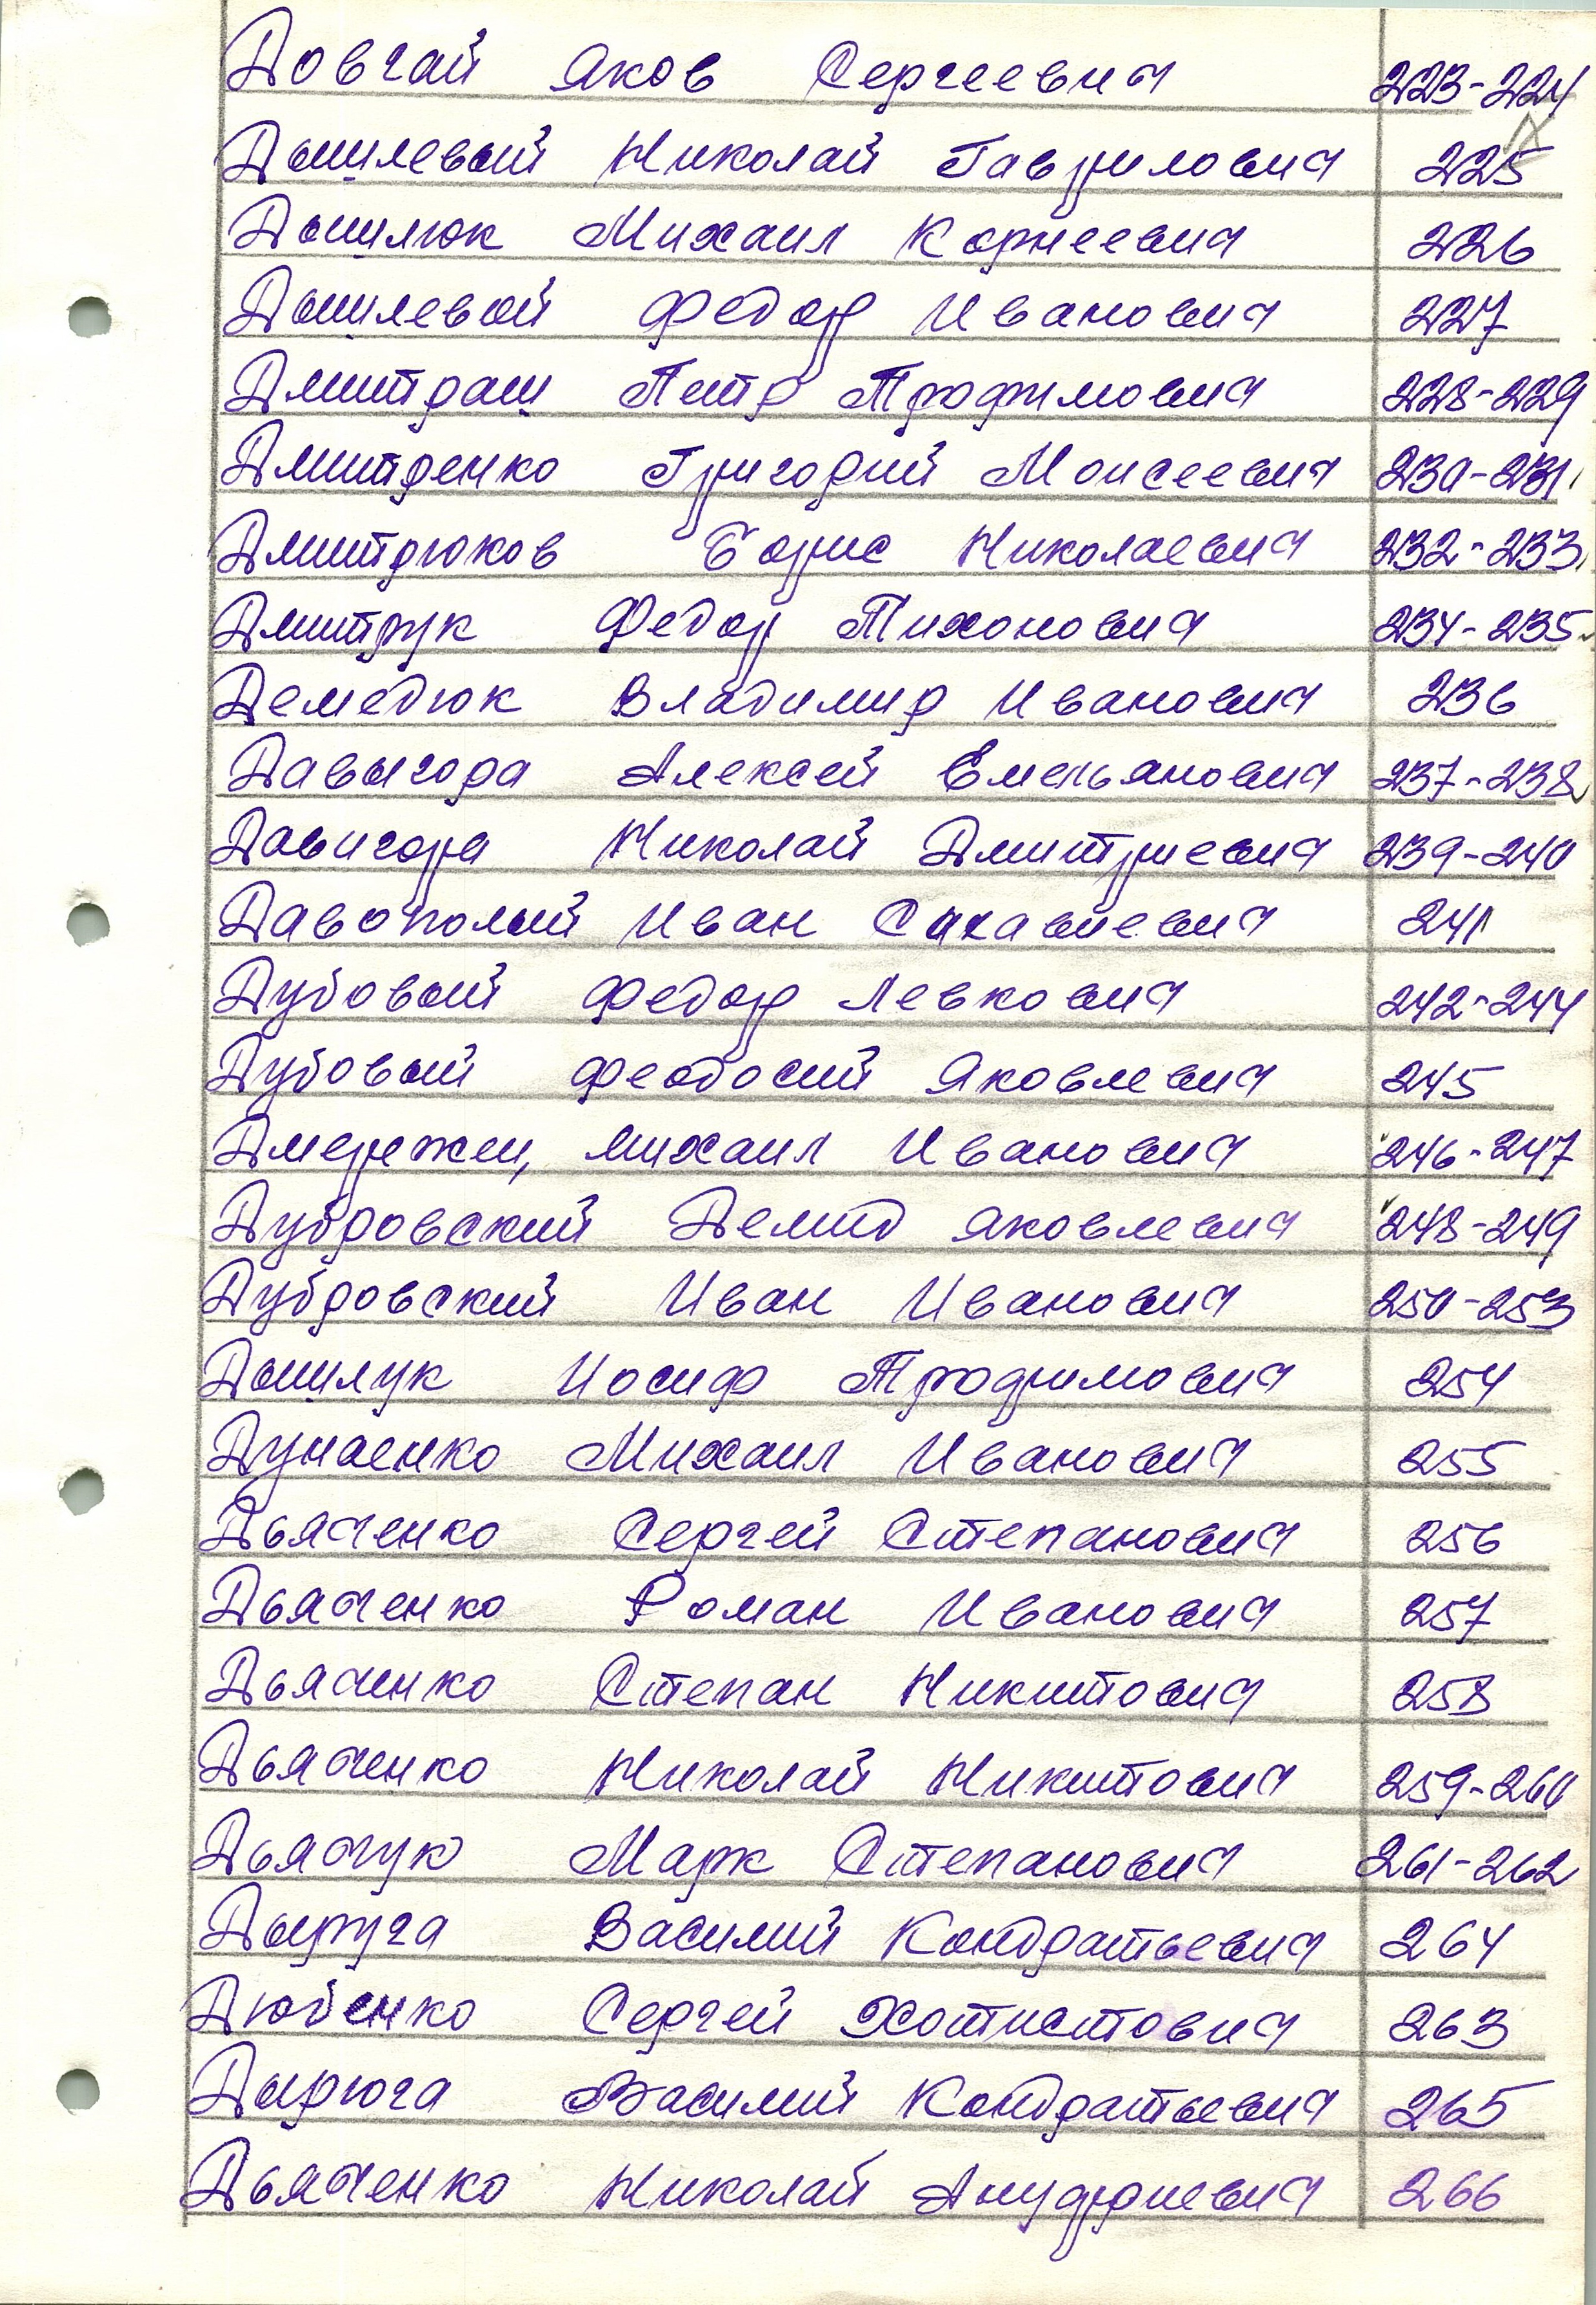 Довгай Яков Сергеевич 223-224
Данилевый Николай Гаврилович 225
Данилюк Михаил Корнеевич 226
Данилевой Федор Иванович 227
Дмитраш Петр Трофимович 228-229
Дмитренко Григорий Моисеевич 230-231
Дмитрюков Борис Николаевич 232-233
Дмитрук Федор Тихонович 234-235
Демедюк Владимир Иванович 236
Давыгора Алексей Емельянович 237-238
Давигора Николай Дмитриевич 239-240
Давополый Иван 241
Дубовый Федор Левкович 242-244
Дубовый Феодосий Яковлевич 245
Дмережец, Михаил Иванович 246-247
Дубровский Демид Яковлевич 248-249
Дубровский Иван Иванович 250-253
Данилук Иосиф Трофимович 254
Дунаенко Михаил Иванович 255
Дьяченко Сергей Степанович 256
Дьяченко Роман Иванович 257
Дьяченко Степан Никитович 258
Дьяченко Николай Никитович 259-260
Дьячук Марк Степанович 261-262
Дыруга Василий Кондратьевич 264
Дюбенко Сергей 263
Дырюга Василий Кондратьевич 265
Дьяченко Николай 266